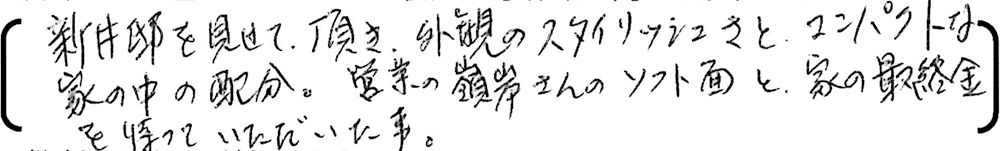 新井邸を見せて頂き、外観のスタイリッシュさと、コンパクトな
家の中の配分。営業の嶺岸さんのソフト面と、家の最終金
を待っていただいた事。